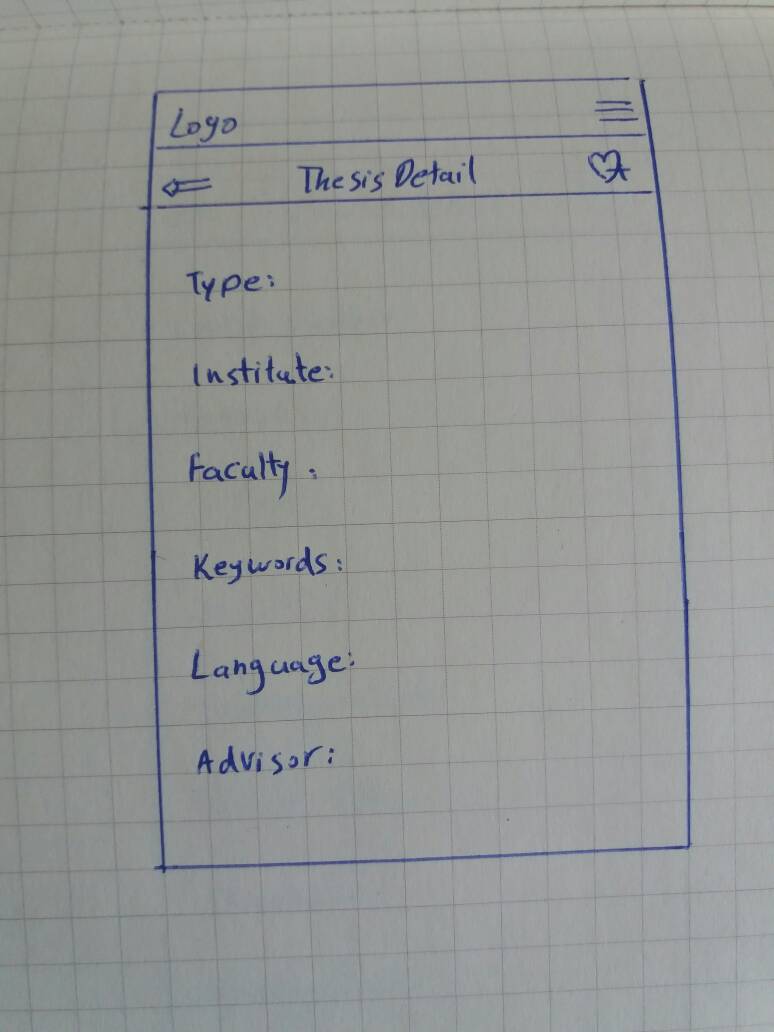 Logo
Thesis Detail
Type:
Institute:
Faculty :
Keywords:
Language:
Advisor: